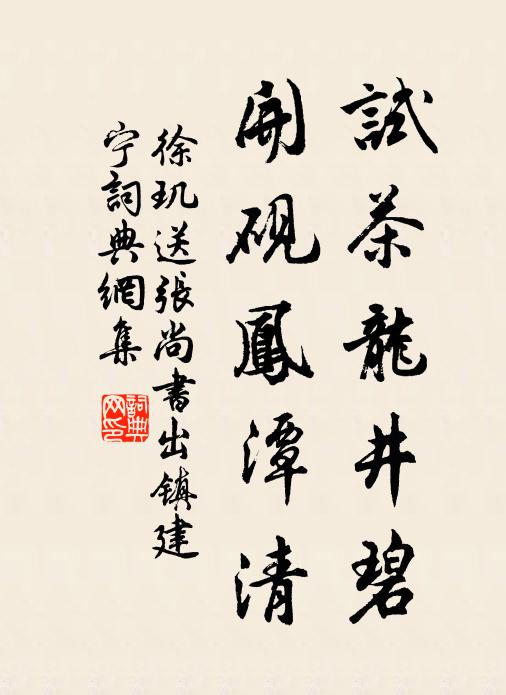 試茶龍井碧
開硯鳳潭清
徐玑送張尚書出鎮建
宁詞典網集
詞典
网印